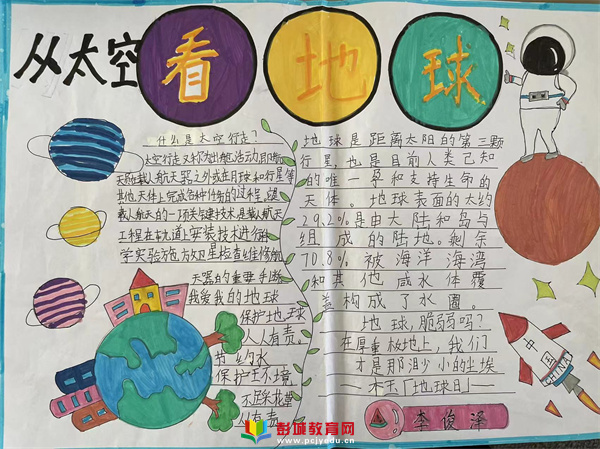 从太空看地球
什么是太空行走?
太空行走又称为出舱活动,即航
天员在载人航天器之外或在月球和行星等
其他天体上完成各种任务的过程。是
载人航天的一项关键技术,是载人航天
工程在轨道上安装技术进行科
学实验施放卫星检查维修航
天器的重要手断
我爱我的地球
保护地球
人人有责。
节约水
保护王环境
不踩花草
人人有责
地球是距离太阳的第三颗
行星,也是目前人类已知
的唯一孕和支持生命的
天体。地球表面的大约
29.2%是由大陆和岛与
组成的陆地。剩余
70.8%被海洋海湾
和其他咸水体覆
盖构成了水圈。
地球,脆弱吗?
在厚重板地上,我们
才是那渺小的尘埃
「地球日」
李俊泽
中国
CHINA
彭城教育网
www.pcjyedu.cn